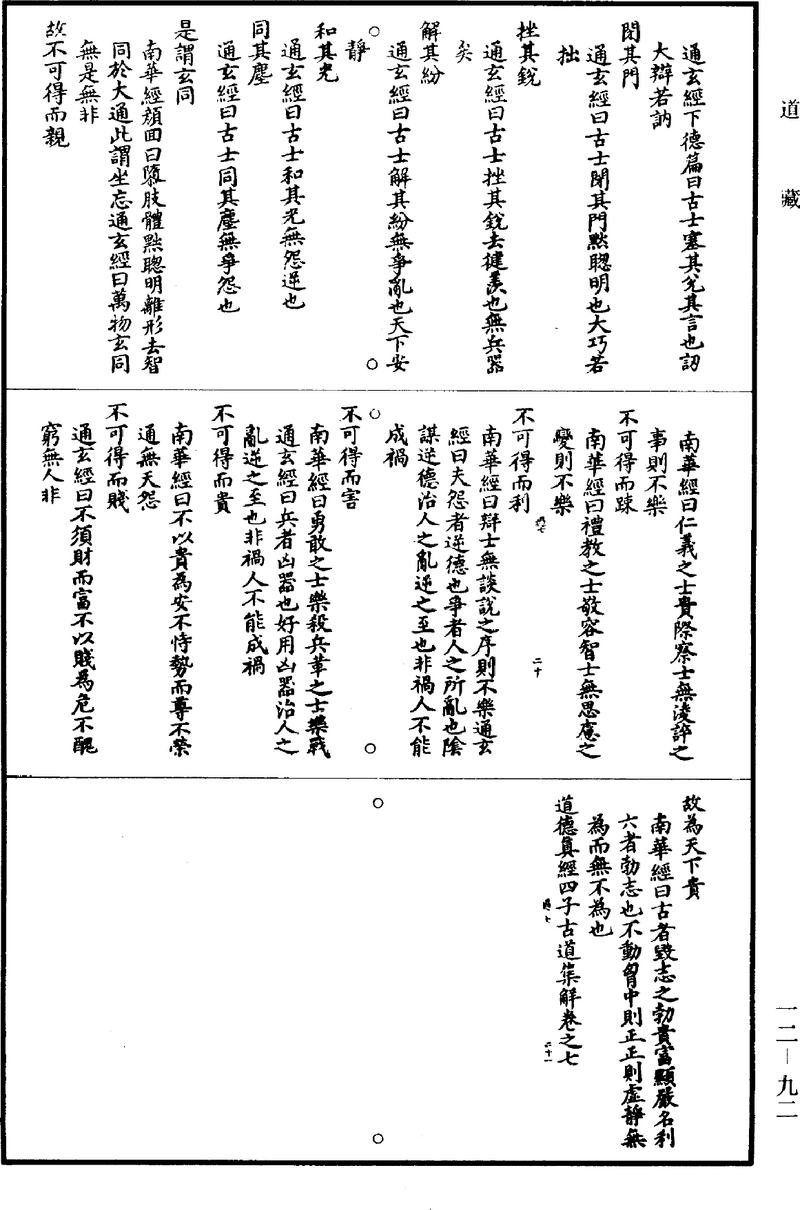 道藏
通玄經下德篇曰古士塞其兌其言也訒
大辯若訥
閉其門
通玄經曰古士閉其門黜聰明也大巧若
拙
挫其銳
通玄經曰古士挫其銳去健羨也無兵器
矣
解其紛
通玄經曰古士解其紛無爭亂也天下安
靜
和其光
通玄經曰古士和其光無怨逆也
同其塵
通玄經曰古士同其塵無爭怨也
是謂玄同
南華經顏回曰隳肢體黜聰明離形去智
同於大通此謂坐忘通玄經曰萬物玄同
無是無非
故不可得而親
南華經曰仁義之士貴際察士無淩誶之
事則不樂
不可得而踈
南華經曰禮教之士敬容智士無思慮之
變則不樂
不可得而利
二十
南華經曰辯士無談說之序則不樂通玄
經曰夫怨者逆德也爭者人之所亂也陰
謀逆德治人之亂逆之至也非禍人不能
成禍
不可得而害
南華經曰勇敢之士樂殺兵革之士樂戰
通玄經曰兵者凶器也好用凶器治人之
亂逆之至也非禍人不能成禍
不可得而貴
南華經曰不以貴為安不恃勢而尊不榮
通無天怨
不可得而賤
通玄經曰不須財而富不以賤為危不醜
窮無人非
故為天下貴
南華經曰古者毀志之勃貴富顯嚴名利
六者勃志也不動胷中則正正則虛靜無
為而無不為也
道德真經四子古道集解卷之七
二十一
一二－九二